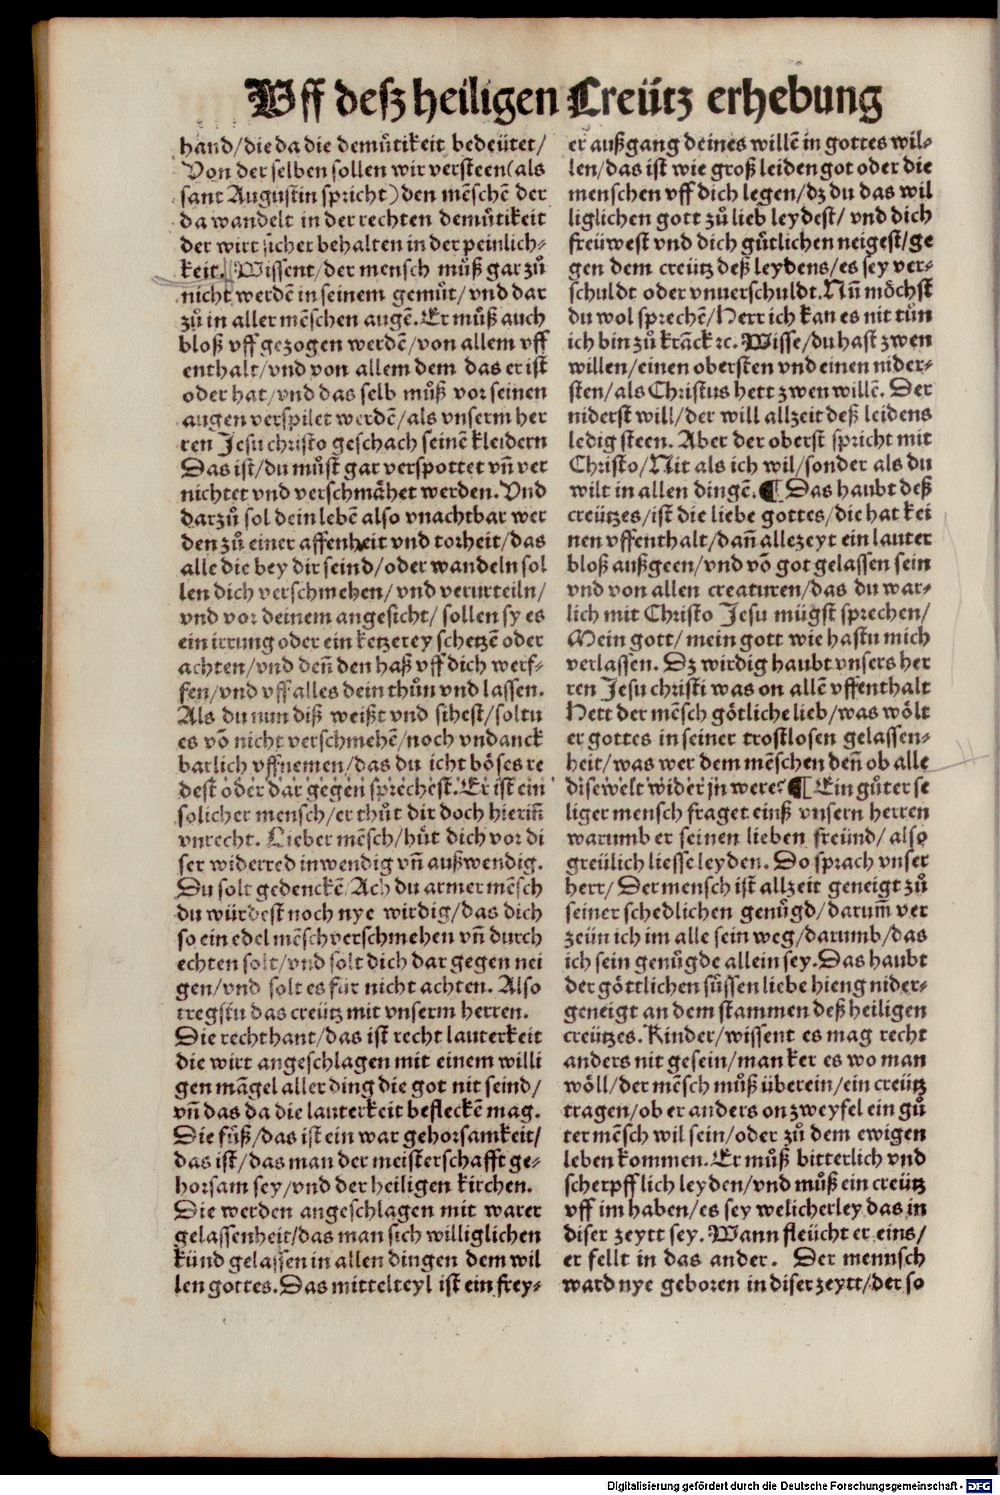 Uff desz heiligen Creütz erhebung
hand/die da die demůtikeit bedeütet/
Von der selben sollen wir versteen(als
sant Augustin spricht)den mẽschẽ der
da wandelt in der rechten demůtikeit
der wirt sicher behalten in der peinlich⸗
keit. ¶ Wissent/der mensch můß gar zů
nicht werdẽ in seinem gemůt/vnd dar
zů in aller mẽschen augẽ. Er můß auch
bloß vff gezogen werdẽ/von allem vff
enthalt/vnd von allem dem das er ist
oder hat/vnd das selb můß vor seinen
augen verspilet werdẽ/als vnserm her
ren Jesu christo geschach seinẽ kleidern
Das ist/du můst gar verspottet vñ ver
nichtet vnd verschmähet werden. Vnd
darzů sol dein lebẽ also vnachtbar wer
den zů einer affenheit vnd torheit/das
alle die bey dir seind/oder wandeln sol
len dich verschmehen/vnd verurteiln/
vnd vor deinem angesicht/sollen sy es
ein irrung oder ein ketzerey schetzẽ oder
achten/vnd deñ den haß vff dich werf⸗
fen/vnd vff alles dein thůn vnd lassen.
Als du nun diß weißt vnd sihest/soltu
es võ nicht verschmehẽ/noch vndanck
barlich vffnemen/das du icht böses re
dest oder dar gegen sprechest. Er ist ein
solicher mensch/er thůt dir doch hieriñ
vnrecht. Lieber mẽsch/hůt dich vor di
ser widerred inwendig vñ außwendig.
Du solt gedenckẽ/Ach du armer mẽsch
du würdest noch nye wirdig/das dich
so ein edel mẽsch verschmehen vñ durch
echten solt/vnd solt dich dar gegen nei
gen/vnd solt es für nicht achten. Also
tregstu das creütz mit vnserm herren.
Die recht hant/das ist recht lauterkeit
die wirt angeschlagen mit einem willi
gen mãgel aller ding die got nit seind/
vñ das da die lauterkeit befleckẽ mag.
Die fůß/das ist ein war gehorsamkeit/
das ist/das man der meisterschafft ge⸗
horsam sey/vnd der heiligen kirchen.
Die werden angeschlagen mit warer
gelassenheit/das man sich williglichen
künd gelassen in allen dingen dem wil
len gottes. Das mittelteyl ist ein frey⸗
er außgang deines willẽ in gottes wil⸗
len/das ist wie groß leiden got oder die
menschen vff dich legen/dz du das wil
liglichen gott zů lieb leydest/vnd dich
freüwest vnd dich gůtlichen neigest/ge
gen dem creütz deß leydens/es sey ver⸗
schuldt oder vnuerschuldt. Nũ möchst
du wol sprechẽ/Herr ich kan es nit tůn
ich bin zů krãck ꝛc. Wisse/du hast zwen
willen/einen obersten vnd einen nider⸗
sten/als Christus hett zwen willẽ. Der
niderst will/der will allzeit deß leidens
ledig steen. Aber der oberst spricht mit
Christo/Nit als ich wil/sonder als du
wilt in allen dingẽ. ¶ Das haubt deß
creützes/ist die liebe gottes/die hat kei
nen vffenthalt/dañ allezeyt ein lauter
bloß außgeen/vnd võ got gelassen sein
vnd von allen creaturen/das du war⸗
lich mit Christo Jesu mügst sprechen/
Mein gott/mein gott wie hastu mich
verlassen. Dz wirdig haubt vnsers her
ren Jesu christi was on allẽ vffenthalt
Hett der mẽsch götliche lieb/was wölt
er gottes in seiner trostlosen gelassen⸗
heit/was wer dem mẽschen deñ ob alle
dise welt wider jn were? ¶ Ein gůter se
liger mensch fraget einß vnsern herren
warumb er seinen lieben freünd/also
greülich liesse leyden. Do sprach vnser
herr/Der mensch ist allzeit geneigt zů
seiner schedlichen genůgd/darum̃ ver
zeün ich im alle sein weg/darumb/das
ich sein genůgde allein sey. Das haubt
der göttlichen süssen liebe hieng nider⸗
geneigt an dem stammen deß heiligen
creützes. Kinder/wissent es mag recht
anders nit gesein/man ker es wo man
wöll/der mẽsch můß überein/ein creütz
tragen/ob er anders on zweyfel ein gů
ter mẽsch wil sein/oder zů dem ewigen
leben kommen. Er můß bitterlich vnd
scherpfflich leyden/vnd můß ein creütz
vff im haben/es sey welicherley das in
diser zeytt sey. Wann fleücht er eins/
er fellt in das ander. Der mennsch
ward nye geboren in diser zeytt/der so
Digitalisierung gefördert durch die Deutsche Forschungsgemeinschaft - DFG